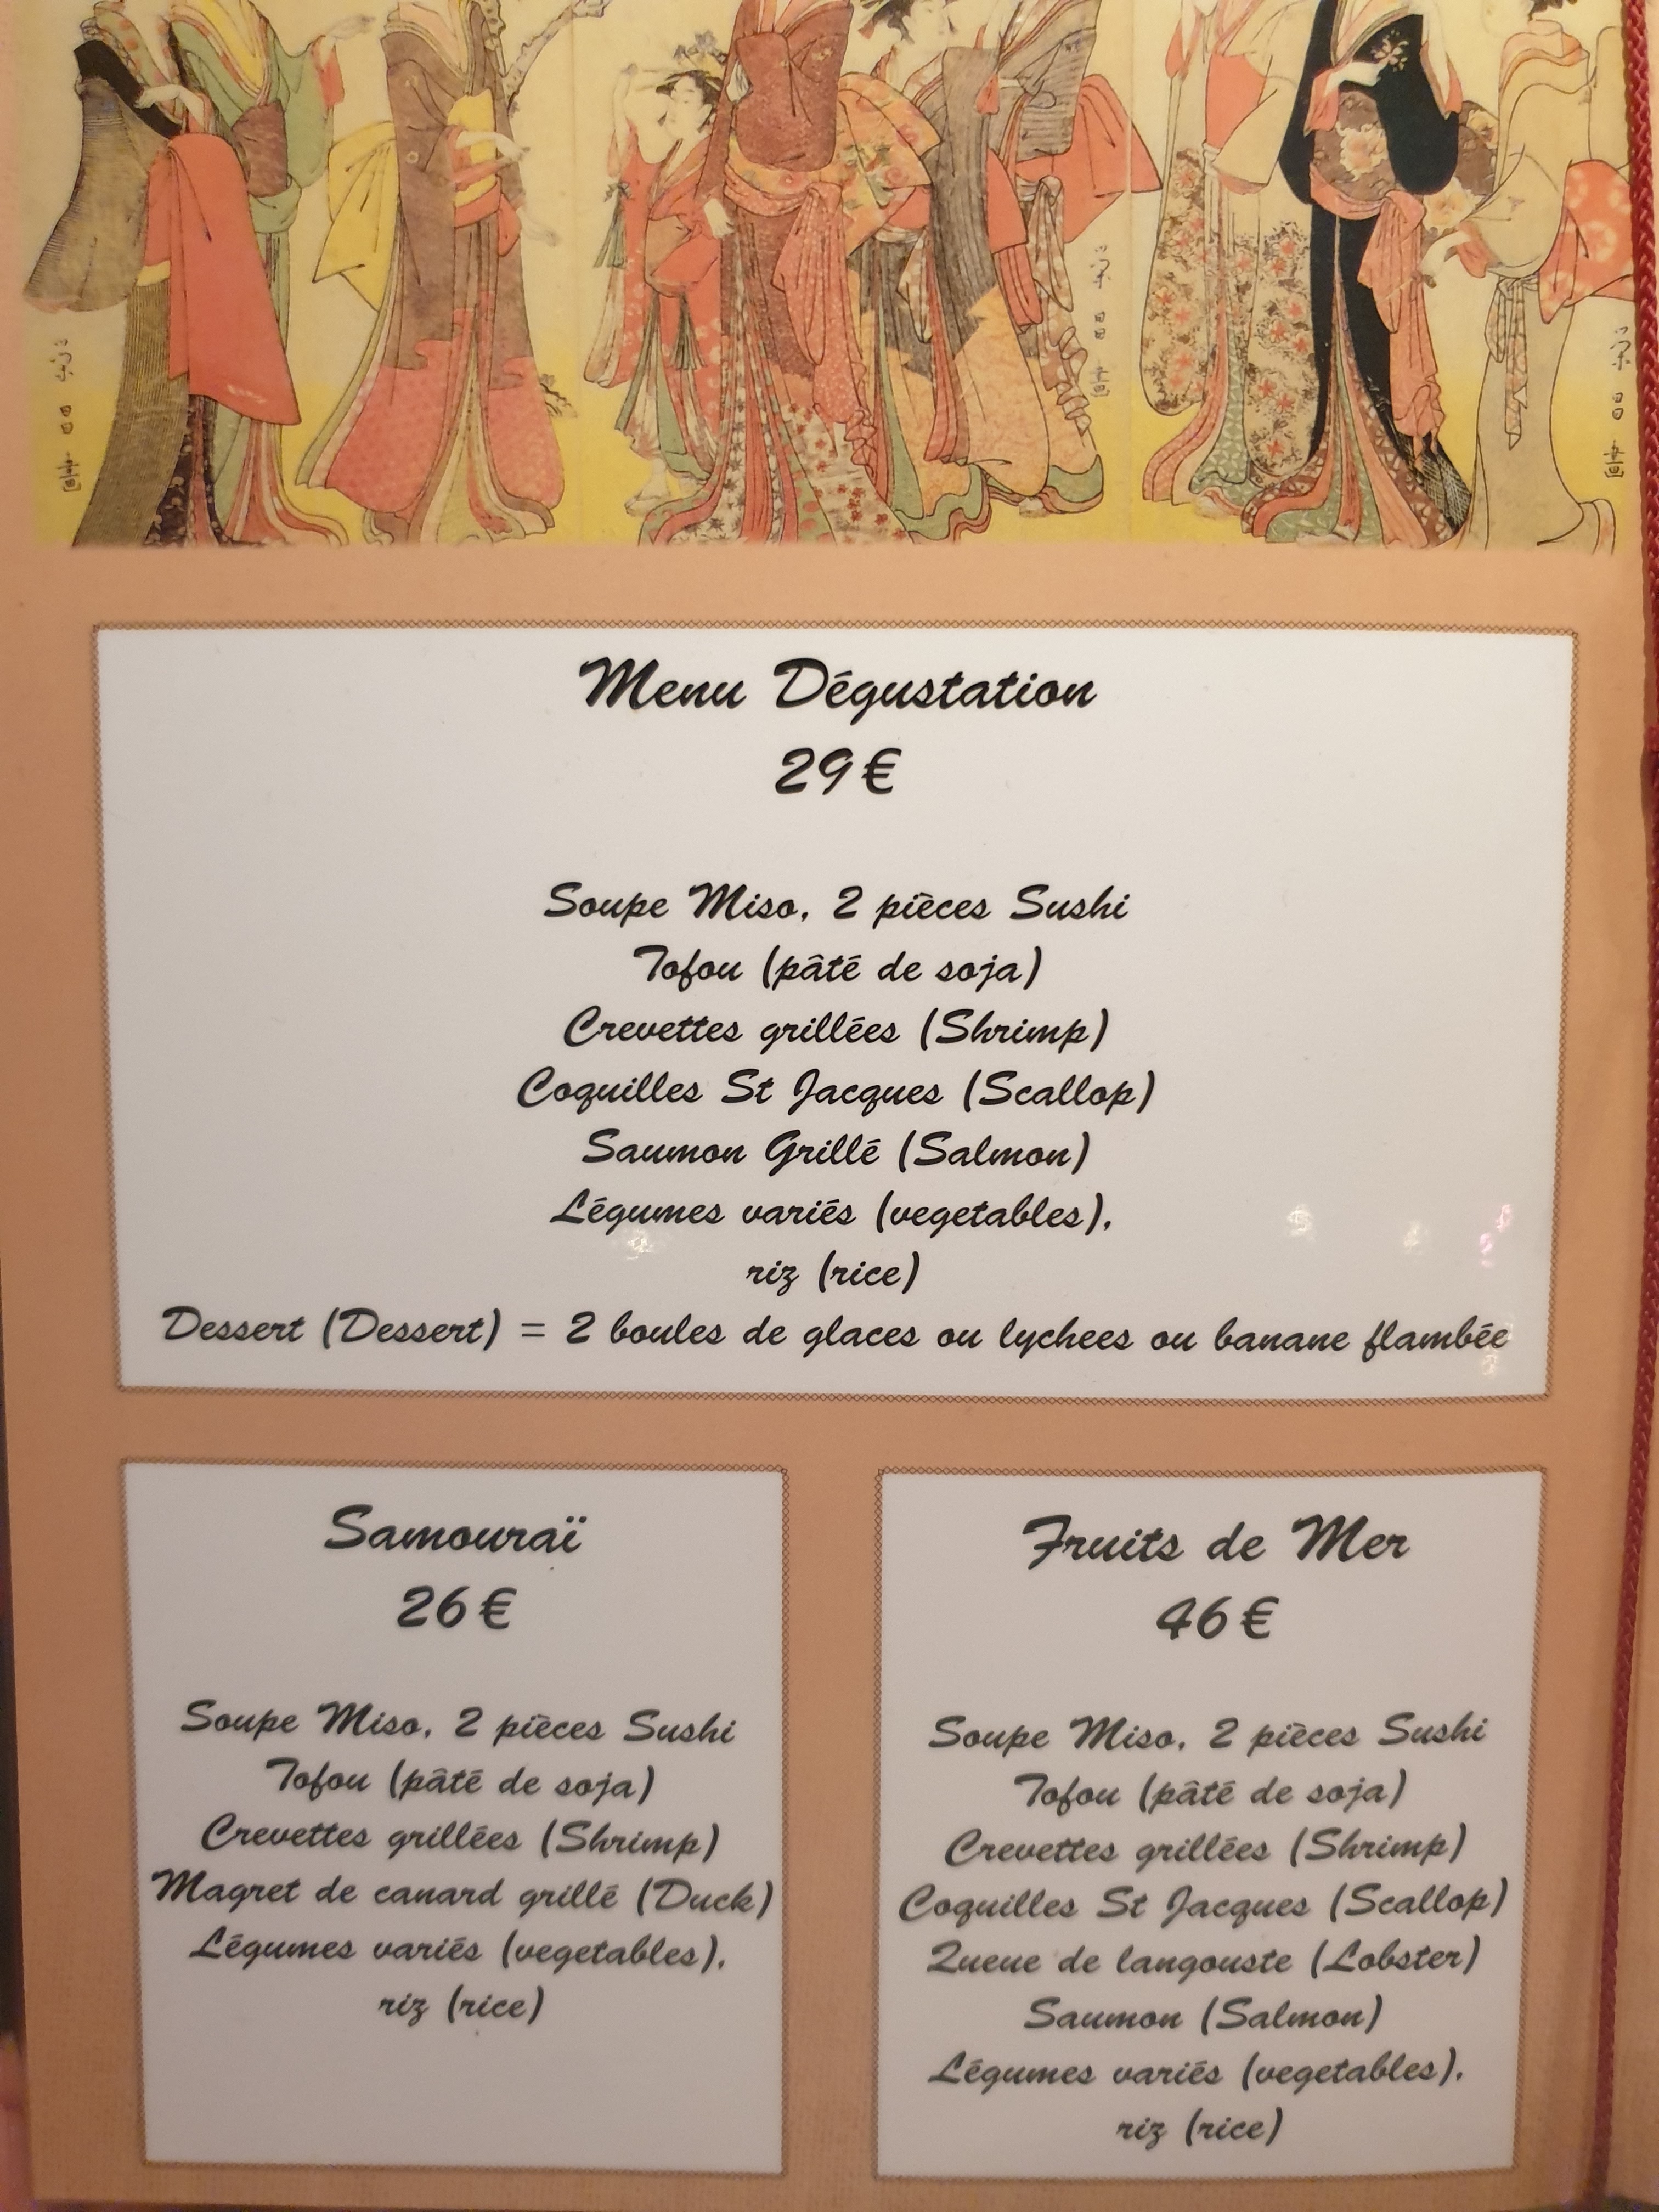 Menu Dégustation
29€
Soupe Miso, 2 pièces Sushi
Tofou (pâté de soja)
Crevettes grillées (Shrimp)
Coquilles St Jacques (Scallop)
Saumon Grillé (Salmon)
Légumes variés (vegetables),
riz (rice)
Dessert (Dessert) = 2 boules de glaces ou lychees ou banane flambée
Samouraï
26€
Soupe Miso, 2 pièces Sushi
Tofou (pâté de soja)
Crevettes grillées (Shrimp)
Magret de canard grillé (Duck)
Légumes variés (vegetables),
riz (rice)
Fruits de Mer
46€
Soupe Miso, 2 pièces Sushi
Tofou (pâté de soja)
Crevettes grillées (Shrimp)
Coquilles St Jacques (Scallop)
Queue de langouste (Lobster)
Saumon (Salmon)
Légumes variés (vegetables),
riz (rice)